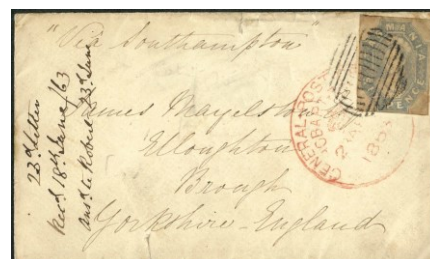 "Via Southampton"
James Mayelston
Elloughton
Brough
Yorkshire - England
23d Letter
Recd 18th June /63
ansd to Robert 23d June
GENERAL POST
HOBART
PENCE